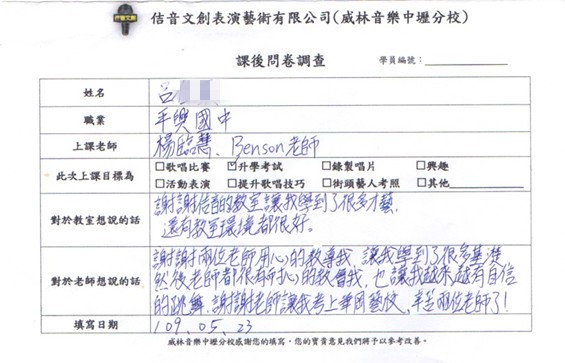 佶音文創
佶音文創表演藝術有限公司(威林音樂中壢分校)
課後問卷調查
學員編號：
姓名 呂
職業 平興國中
上課老師 楊臨慧、Benson老師
此次上課目標為 □歌唱比賽 ☑升學考試 □錄製唱片 □興趣
□活動表演 □提升歌唱技巧 □街頭藝人考照 □其他
對於教室想說的話 謝謝佶音的教室讓我學到了很多才藝，
還有教室環境都很好。
對於老師想說的話 謝謝兩位老師用心的教導我，讓我學到了很多基礎
然後老師都很有耐心的教會我，也讓我越來越有自信
的跳舞，謝謝老師讓我考上華岡藝校，辛苦兩位老師了！
填寫日期 109.05.23
威林音樂中壢分校感謝您的填寫，您的寶貴意見我們將予以參考改善。